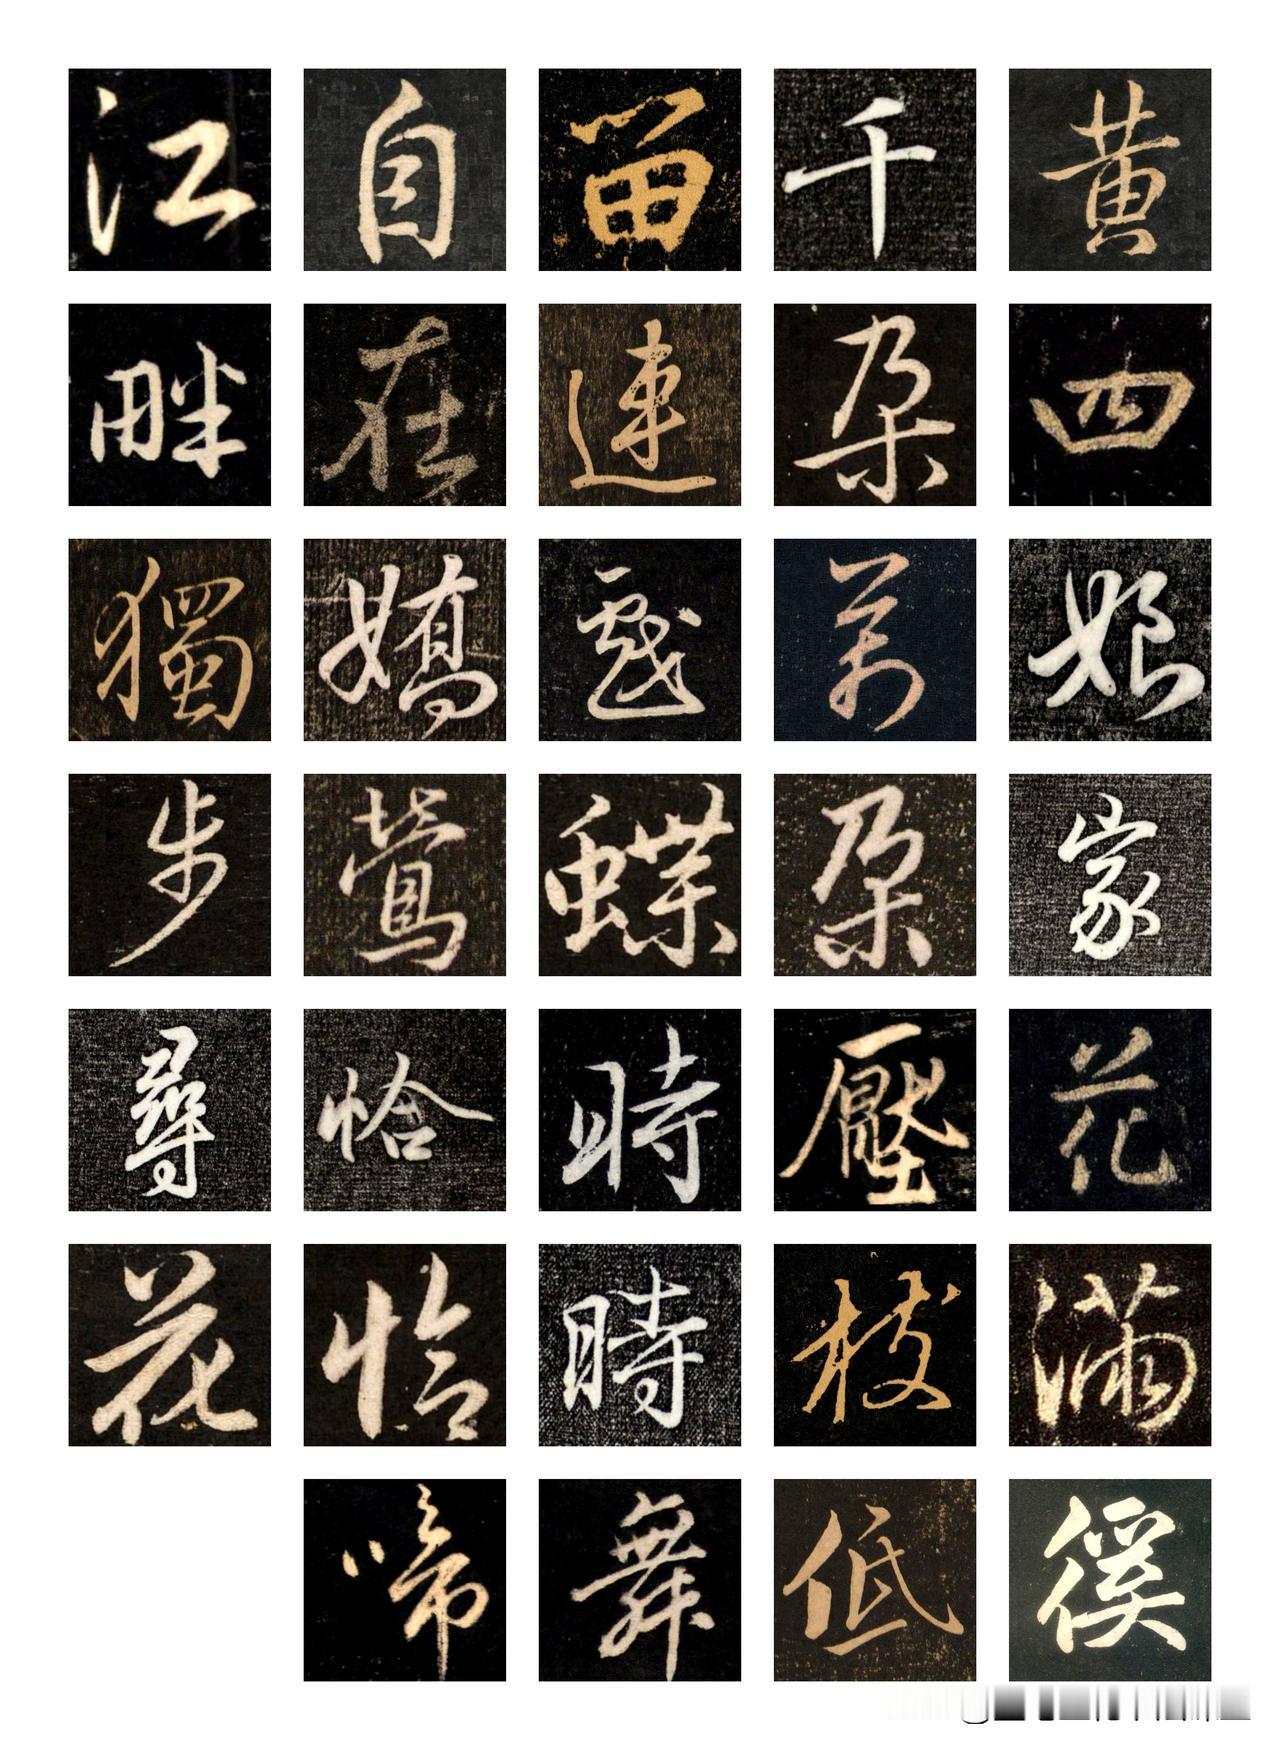 黄四娘家花滿徯
千朵萬朵壓枝低
留連戲蝶時時舞
自在嬌鶯恰恰啼
江畔獨步尋花